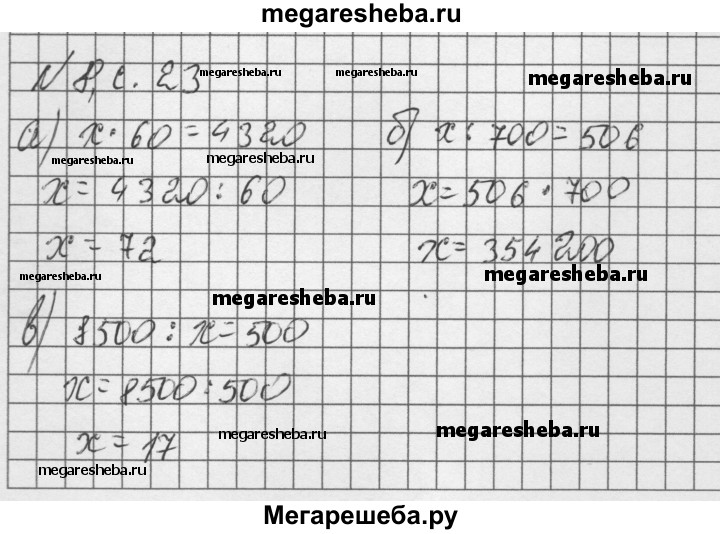 megaresheba.ru
N 8, с. 23 megaresheba.ru megaresheba.ru megaresheba.ru
а) x · 60 = 4320 б) x : 700 = 506
megaresheba.ru megaresheba.ru
x = 4320 : 60 x = 506 · 700
x = 72 x = 354 200
megaresheba.ru megaresheba.ru
megaresheba.ru
в) 8500 : x = 500
x = 8500 : 500
x = 17 megaresheba.ru megaresheba.ru
megaresheba.ru
Мегарешеба.ру